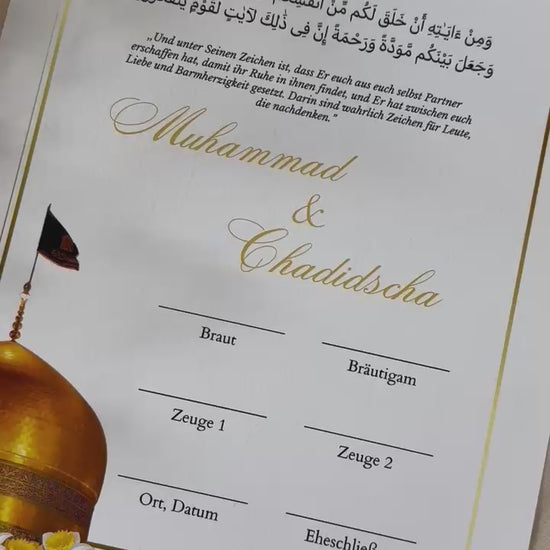 وَمِنْ ءَايَـٰتِهِۦٓ أَنْ خَلَقَ لَكُم مِّنْ أَنفُسِكُمْ
وَجَعَلَ بَيْنَكُم مَّوَدَّةً وَرَحْمَةً إِنَّ فِى ذَٰلِكَ لَـَٔايَـٰتٍ لِّقَوْمٍ يَتَفَكَّرُونَ
„Und unter Seinen Zeichen ist, dass Er euch aus euch selbst Partner
erschaffen hat, damit ihr Ruhe in ihnen findet, und Er hat zwischen euch
Liebe und Barmherzigkeit gesetzt. Darin sind wahrlich Zeichen für Leute,
die nachdenken."
Muhammad
&
Chadidscha
Braut
Bräutigam
Zeuge 1
Zeuge 2
Ort, Datum